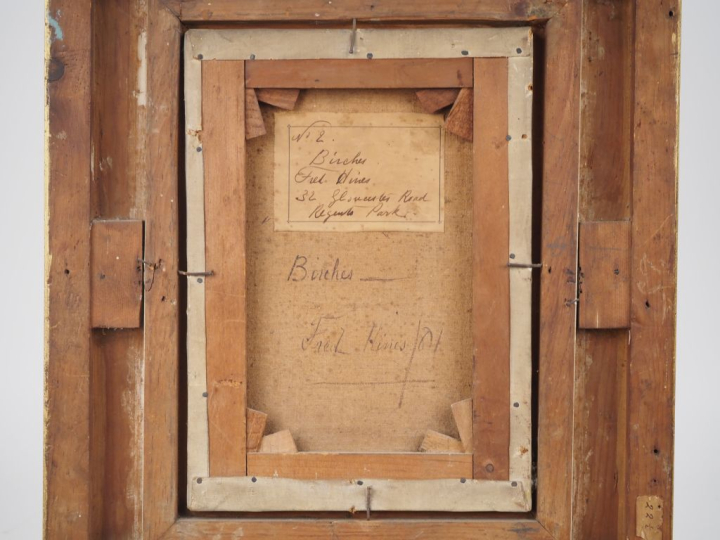 No 2.
Birches
Fred. Hines
32 Gloucester Road
Regents Park.
Birches
Fred Hines/84